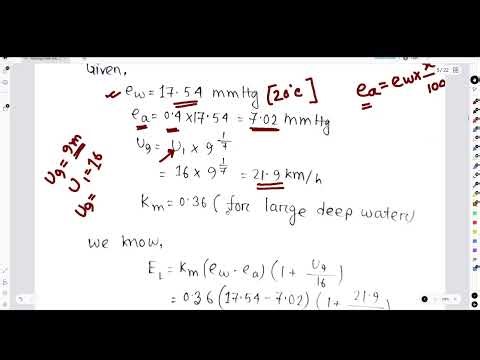 Given,
5/22
e_w = 17.54 mmHg [20°c]
e_a = e_w × x/100
e_a = 0.4 × 17.54 = 7.02 mmHg
U_9 = U_1 × 9^(1/7)
= 16 × 9^(1/7) = 21.9 km/h
U_9 = 9m
U_1 = 16
U_9 =
K_m = 0.36 (for large deep water)
we know,
E_L = K_m (e_w - e_a) (1 + U_9/16)
= 0.36 (17.54 - 7.02) (1 + 21.9